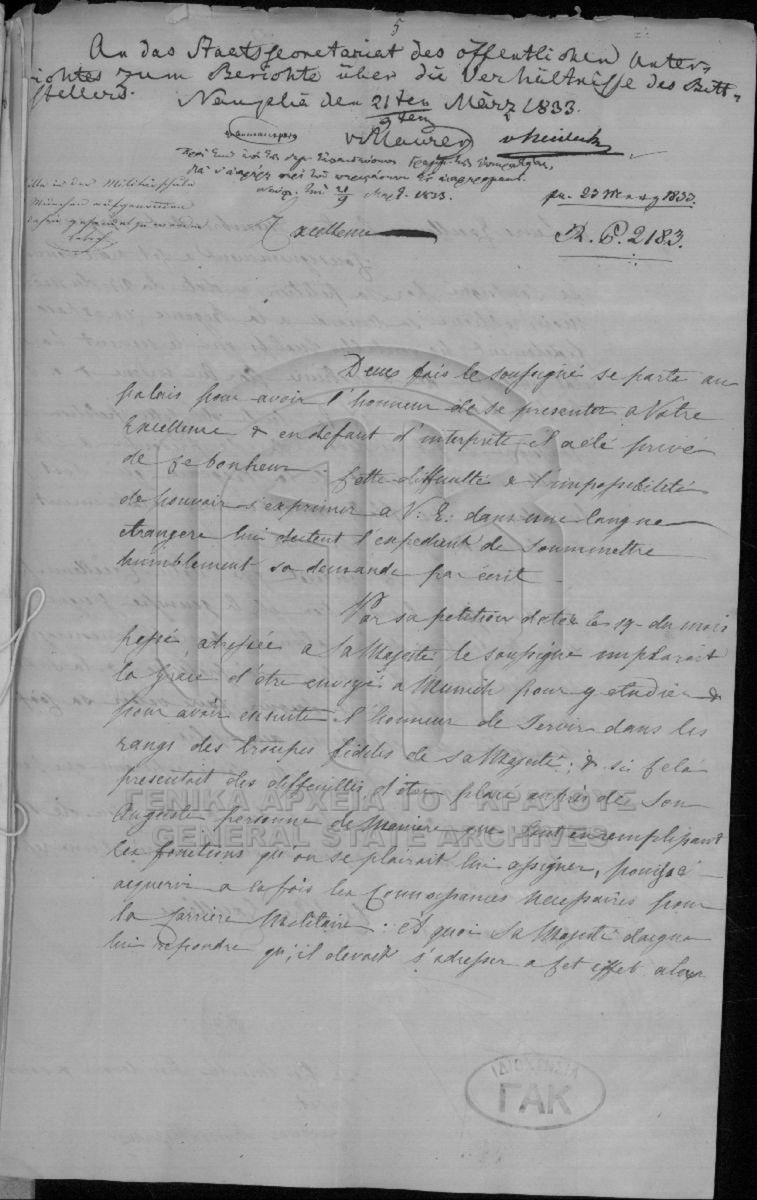 5
An das Staatssecretariat des öffentlichen Unter-
richtes zum Berichte über die Verhältnisse des Bitt-
stellers.
Nauplia den 21ten März 1833.
9ten
v Maurer v Heideck
Ναύπ. τῇ 21/9 Μαρτ. 1833.
pr. 23 März 1833.
R. P. 2183.
in der Militärschule
München aufgenommen
Excellence
Deux fois le soussigné se porta au
palais pour avoir l'honneur de se presenter a Votre
Excellence & en defaut d'interprete il a été privé
de ce bonheur. Cette difficulté & l'impossibilité
de pouvoir s'exprimer a V. E. dans une langue
etrangere lui dictent l'expedient de soummettre
humblement sa demande par écrit
Par sa petition datée le 19 du mois
passé, adressée a Sa Majesté le soussigné implorait
la grace d'être envoyé a Munich pour y etudier &
pour avoir ensuite l'honneur de Servir dans les
rangs des troupes fideles de Sa Majesté; & si cela
presentait des difficultés, d'être placé auprès de Son
Auguste personne de maniere que tout en remplissant
les fonctions qu'on se plairait lui assigner, puisse
acquerir a la fois les connoissances necessaires pour
la carriere Militaire. A quoi Sa Majesté daigna
lui repondre qu'il devait s'adresser a cet effet a
ΓΕΝΙΚΑ ΑΡΧΕΙΑ ΤΟΥ ΚΡΑΤΟΥΣ
GENERAL STATE ARCHIVES
ΙΔΙΟΚΤΗΣΙΑ
ΓΑΚ